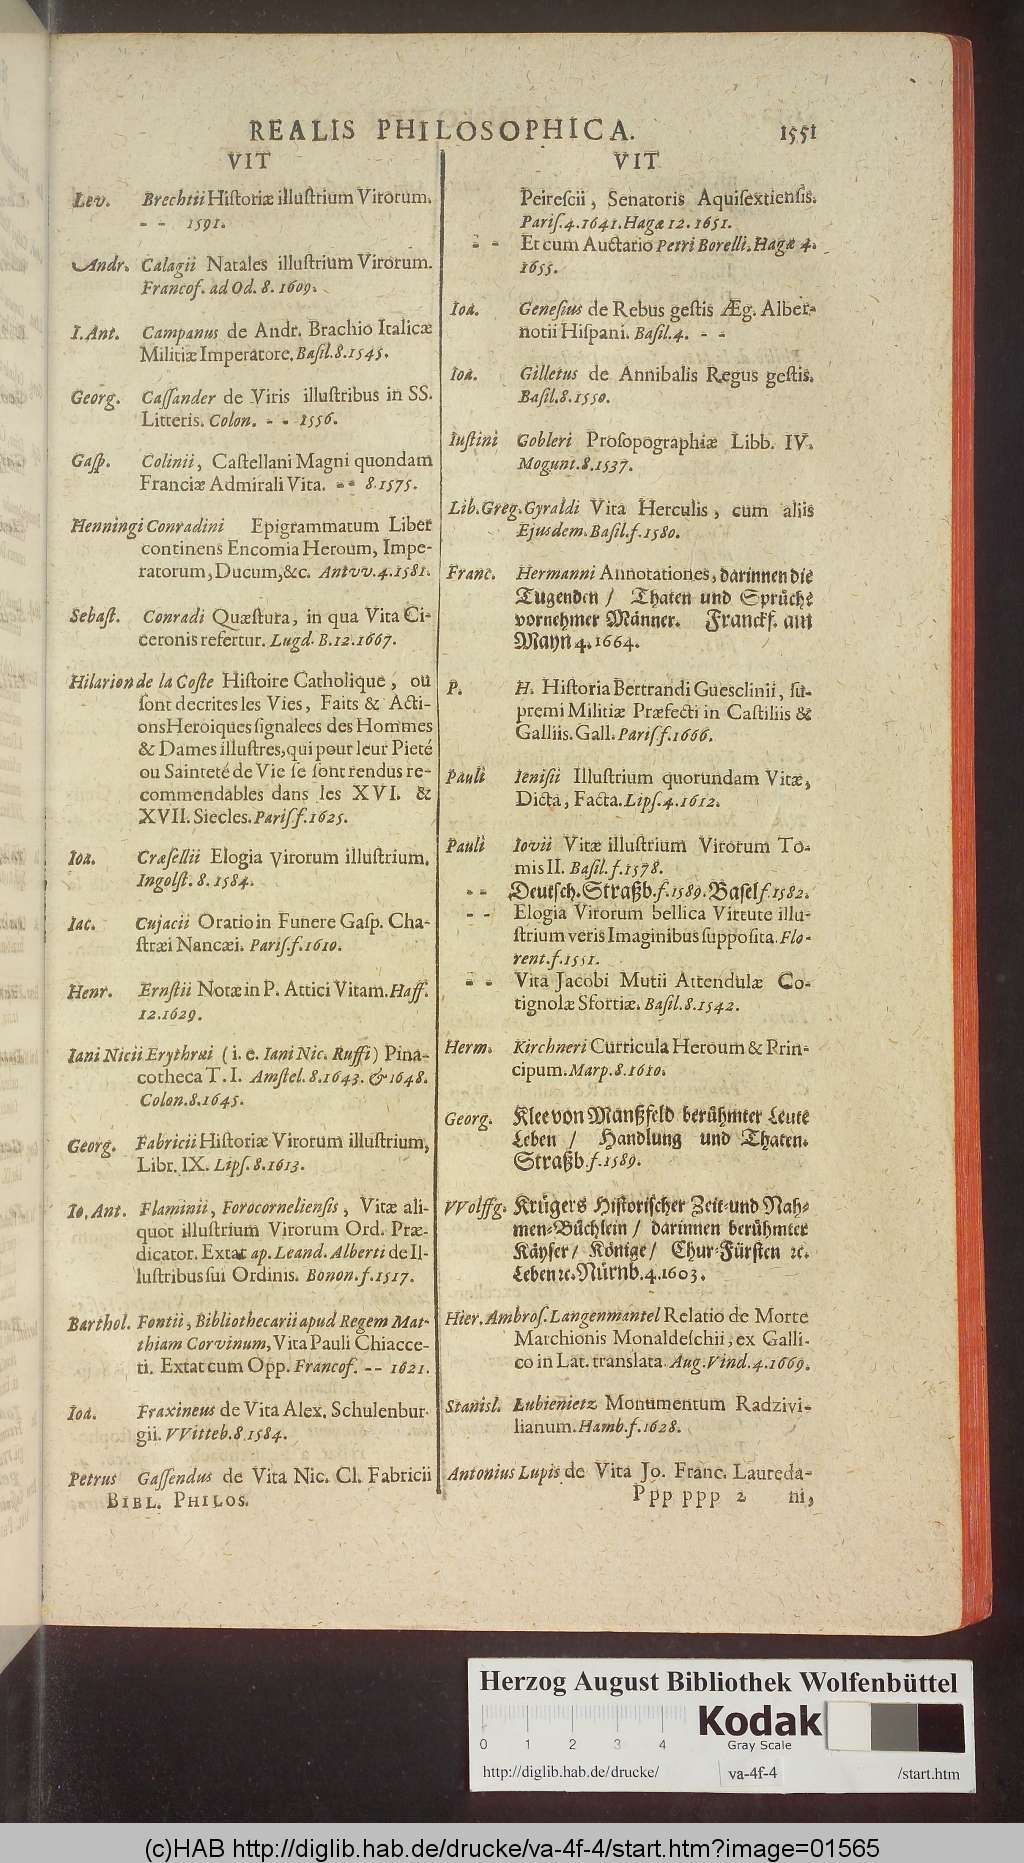 REALIS PHILOSOPHICA. 1551
VIT
Lev. Brechtii Historiæ illustrium Virorum.
- - 1591.
Andr. Calagii Natales illustrium Virorum.
Francof. ad Od. 8. 1609.
I. Ant. Campanus de Andr. Brachio Italicæ
Militiæ Imperatore. Basil. 8. 1545.
Georg. Cassander de Viris illustribus in SS.
Litteris. Colon. - - 1556.
Gasp. Colinii, Castellani Magni quondam
Franciæ Admirali Vita. - - 8. 1575.
Henningi Conradini Epigrammatum Liber
continens Encomia Heroum, Impe-
ratorum, Ducum, &c. Antvv. 4. 1581.
Sebast. Conradi Quæstura, in qua Vita Ci-
ceronis refertur. Lugd. B. 12. 1667.
Hilarion de la Coste Histoire Catholique, ou
sont decrites les Vies, Faits & Acti-
ons Heroiques signalees des Hommes
& Dames illustres, qui pour leur Pieté
ou Sainteté de Vie se sont rendus re-
commendables dans les XVI. &
XVII. Siecles. Paris f. 1625.
Ioa. Crasellii Elogia Virorum illustrium.
Ingolst. 8. 1584.
Iac. Cujacii Oratio in Funere Gasp. Cha-
stræi Nancæi. Paris. f. 1610.
Henr. Ernstii Notæ in P. Attici Vitam. Haff.
12. 1629.
Iani Nicii Erythræi (i. e. Iani Nic. Ruffi) Pina-
cotheca T. I. Amstel. 8. 1643. & 1648.
Colon. 8. 1645.
Georg. Fabricii Historiæ Virorum illustrium,
Libr. IX. Lips. 8. 1613.
Io. Ant. Flaminii, Forocorneliensis, Vitæ ali-
quot illustrium Virorum Ord. Præ-
dicator. Extat ap. Leand. Alberti de Il-
lustribus sui Ordinis. Bonon. f. 1517.
Barthol. Fontii, Bibliothecarii apud Regem Mat-
thiam Corvinum, Vita Pauli Chiacce-
ti. Extat cum Opp. Francof. - - 1621.
Ioa. Fraxineus de Vita Alex. Schulenbur-
gii. VVitteb. 8. 1584.
Petrus Gassendus de Vita Nic. Cl. Fabricii
BIBL. PHILOS.
VIT
Peirescii, Senatoris Aquisextiensis.
Paris. 4. 1641. Hagæ 12. 1651.
- - Et cum Auctario Petri Borelli. Hagæ 4.
1655.
Ioa. Genesius de Rebus gestis Æg. Alber-
notii Hispani. Basil. 4. - -
Ioa. Gilletus de Annibalis Regus gestis.
Basil. 8. 1550.
Iustini Gobleri Prosopographiæ Libb. IV.
Mogunt. 8. 1537.
Lib. Greg. Gyraldi Vita Herculis, cum aliis
Ejusdem. Basil. f. 1580.
Franc. Hermanni Annotationes, darinnen die
Tugenden / Thaten und Sprüche
vornehmer Männer. Franckf. am
Mayn 4. 1664.
P. H. Historia Bertrandi Guesclinii, su-
premi Militiæ Præfecti in Castiliis &
Galliis. Gall. Paris f. 1666.
Pauli Ienisii Illustrium quorundam Vitæ,
Dicta, Facta. Lips. 4. 1612.
Pauli Iovii Vitæ illustrium Virorum To-
mis II. Basil. f. 1578.
- - Deutsch. Straßb. f. 1589. Basel f. 1582.
- - Elogia Virorum bellica Virtute illu-
strium veris Imaginibus supposita. Flo-
rent. f. 1551.
- - Vita Jacobi Mutii Attendulæ Co-
tignolæ Sfortiæ. Basil. 8. 1542.
Herm. Kirchneri Curricula Heroum & Prin-
cipum. Marp. 8. 1610.
Georg. Klee von Manßfeld berühmter Leute
Leben / Handlung und Thaten.
Straßb. f. 1589.
VVolffg. Krügers Historischer Zeit- und Nah-
men-Büchlein / darinnen berühmter
Käyser / Könige / Chur-Fürsten ꝛc.
Leben ꝛc. Nürnb. 4. 1603.
Hier. Ambros. Langenmantel Relatio de Morte
Marchionis Monaldeschii, ex Galli-
co in Lat. translata. Aug. Vind. 4. 1669.
Stanisl. Lubienietz Monumentum Radzivi-
lianum. Hamb. f. 1628.
Antonius Lupis de Vita Jo. Franc. Laureda-
Ppp ppp 2 ni,
Herzog August Bibliothek Wolfenbüttel
0 1 2 3 4
Kodak
Gray Scale
http://diglib.hab.de/drucke/ va-4f-4 /start.htm
(c)HAB http://diglib.hab.de/drucke/va-4f-4/start.htm?image=01565